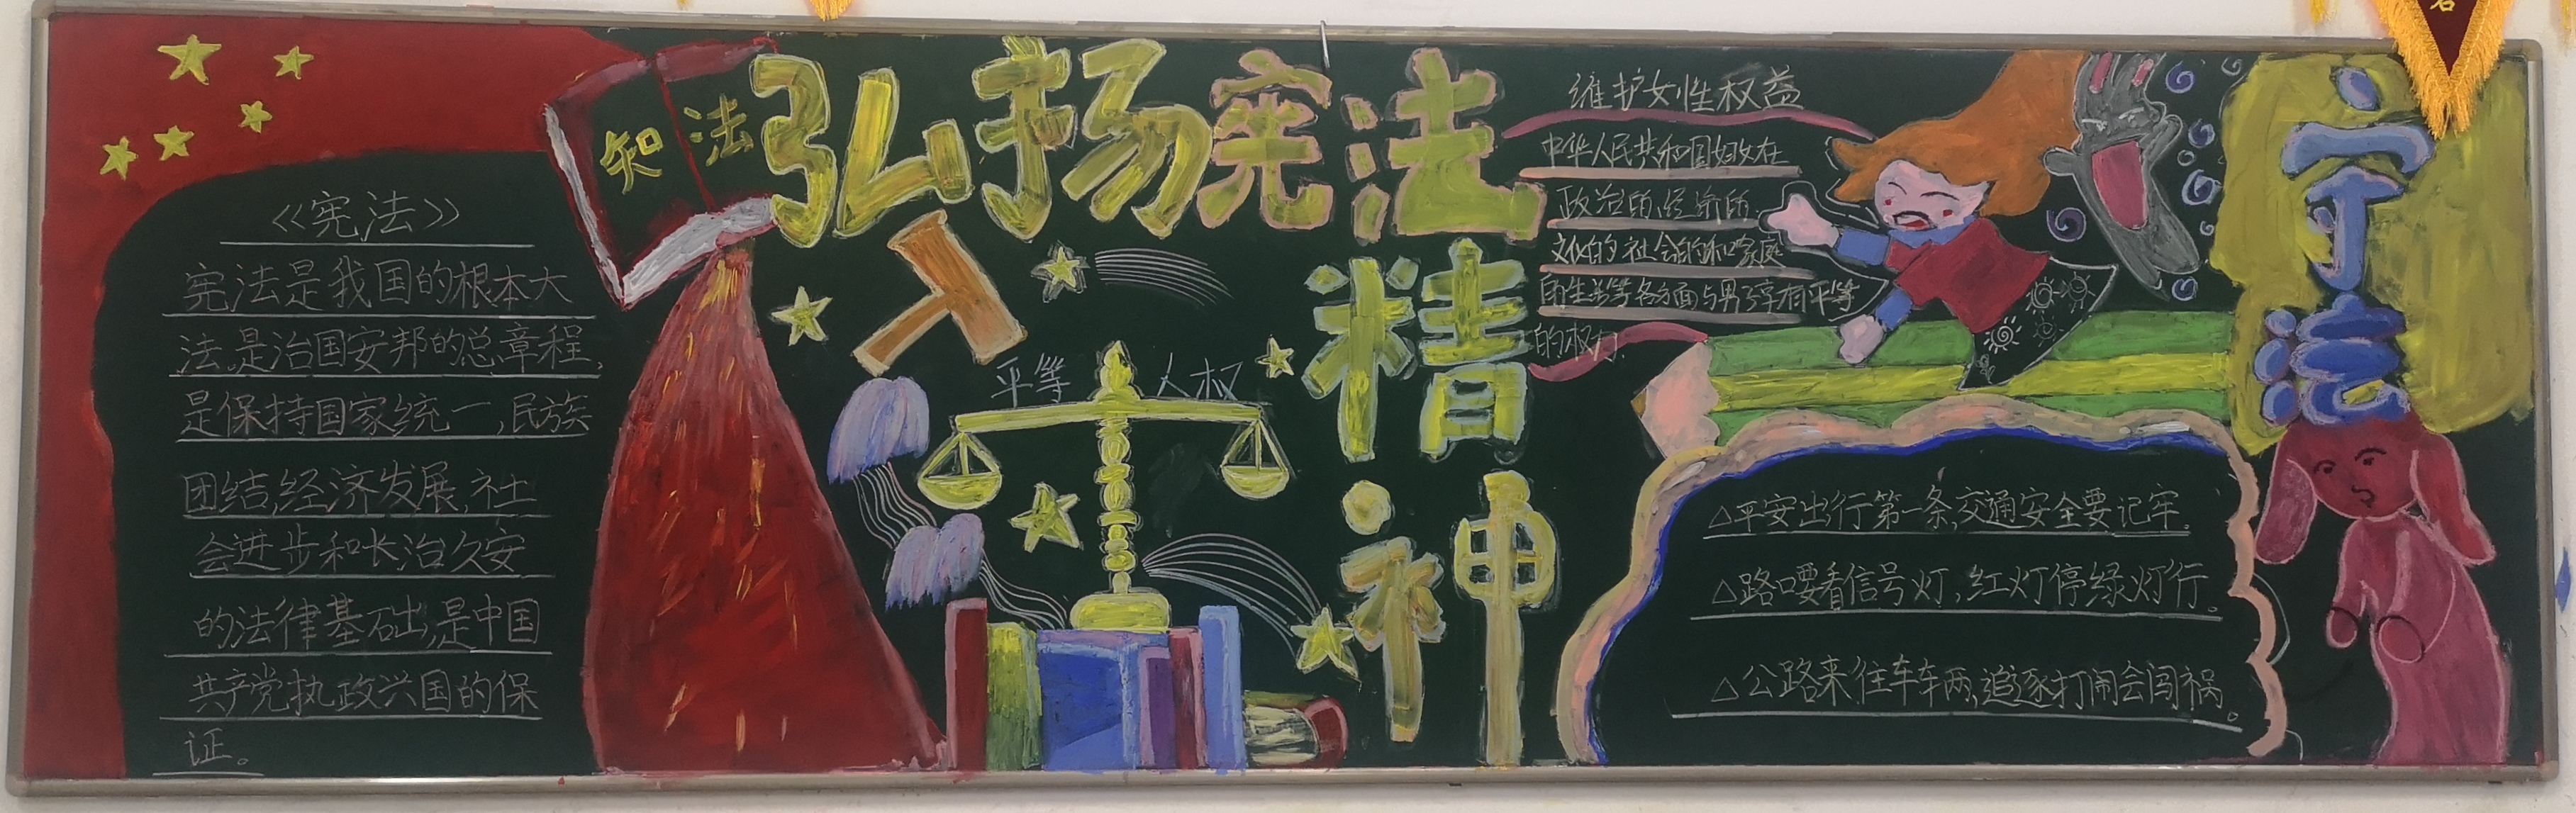 《宪法》
宪法是我国的根本大
法,是治国安邦的总章程,
是保持国家统一,民族
团结,经济发展,社
会进步和长治久安
的法律基础,是中国
共产党执政兴国的保
证。
知法
弘扬宪法
精
神
平等 人权
维护女性权益
中华人民共和国妇女在
政治的,经济的
文化的,社会的和家庭
的生活等各方面与男子享有平等
的权力.
守法
△平安出行第一条,交通安全要记牢。
△路口要看信号灯,红灯停绿灯行。
△公路来往车车辆,追逐打闹会闯祸。